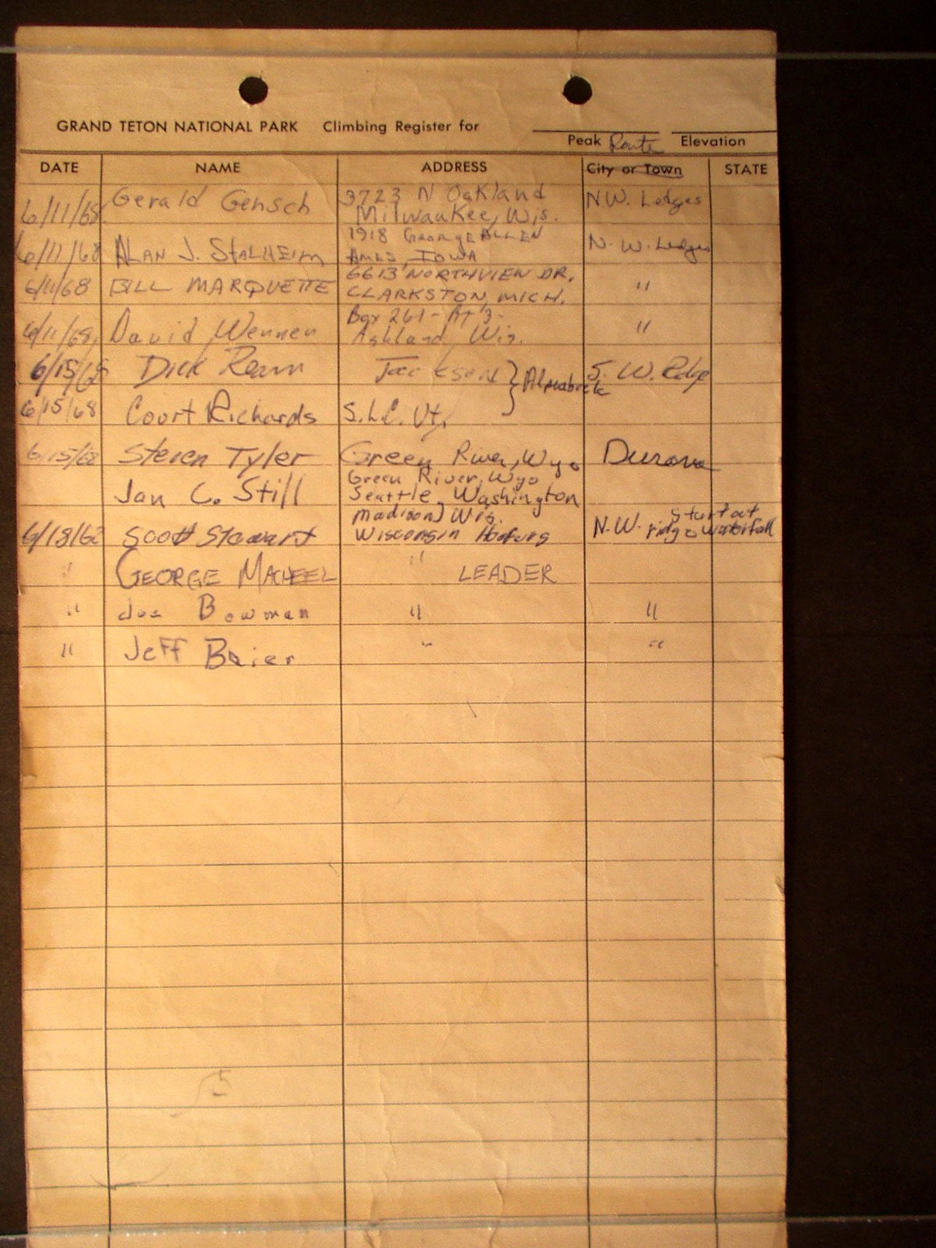 GRAND TETON NATIONAL PARK Climbing Register for
Peak Route Elevation
DATE NAME ADDRESS City or Town STATE
6/11/68 Gerald Gensch 3723 N Oakland NW. Ledges
Milwaukee, Wis.
6/11/68 ALAN J. STALHEIM 1918 GEORGE ALLEN N.W. Ledges
AMES IOWA
6/11/68 BILL MARQUETTE 6613 NORTHVIEW DR. "
CLARKSTON, MICH.
6/11/68 David Wennen Box 261 - Rt 3 - "
Ashland, Wis.
6/15/68 Dick Ream Jackson } S. W. Ridge
6/15/68 Court Richards S.L.C. Ut.
6/15/68 Steven Tyler Green River, Wyo
Green River, Wyo
Jan C. Still Seattle, Washington
Madison, Wis.
6/18/68 Scott Stewart Wisconsin Hoofers N.W. ridge
" GEORGE " LEADER
" Joe Bowman " "
" Jeff Baier " "